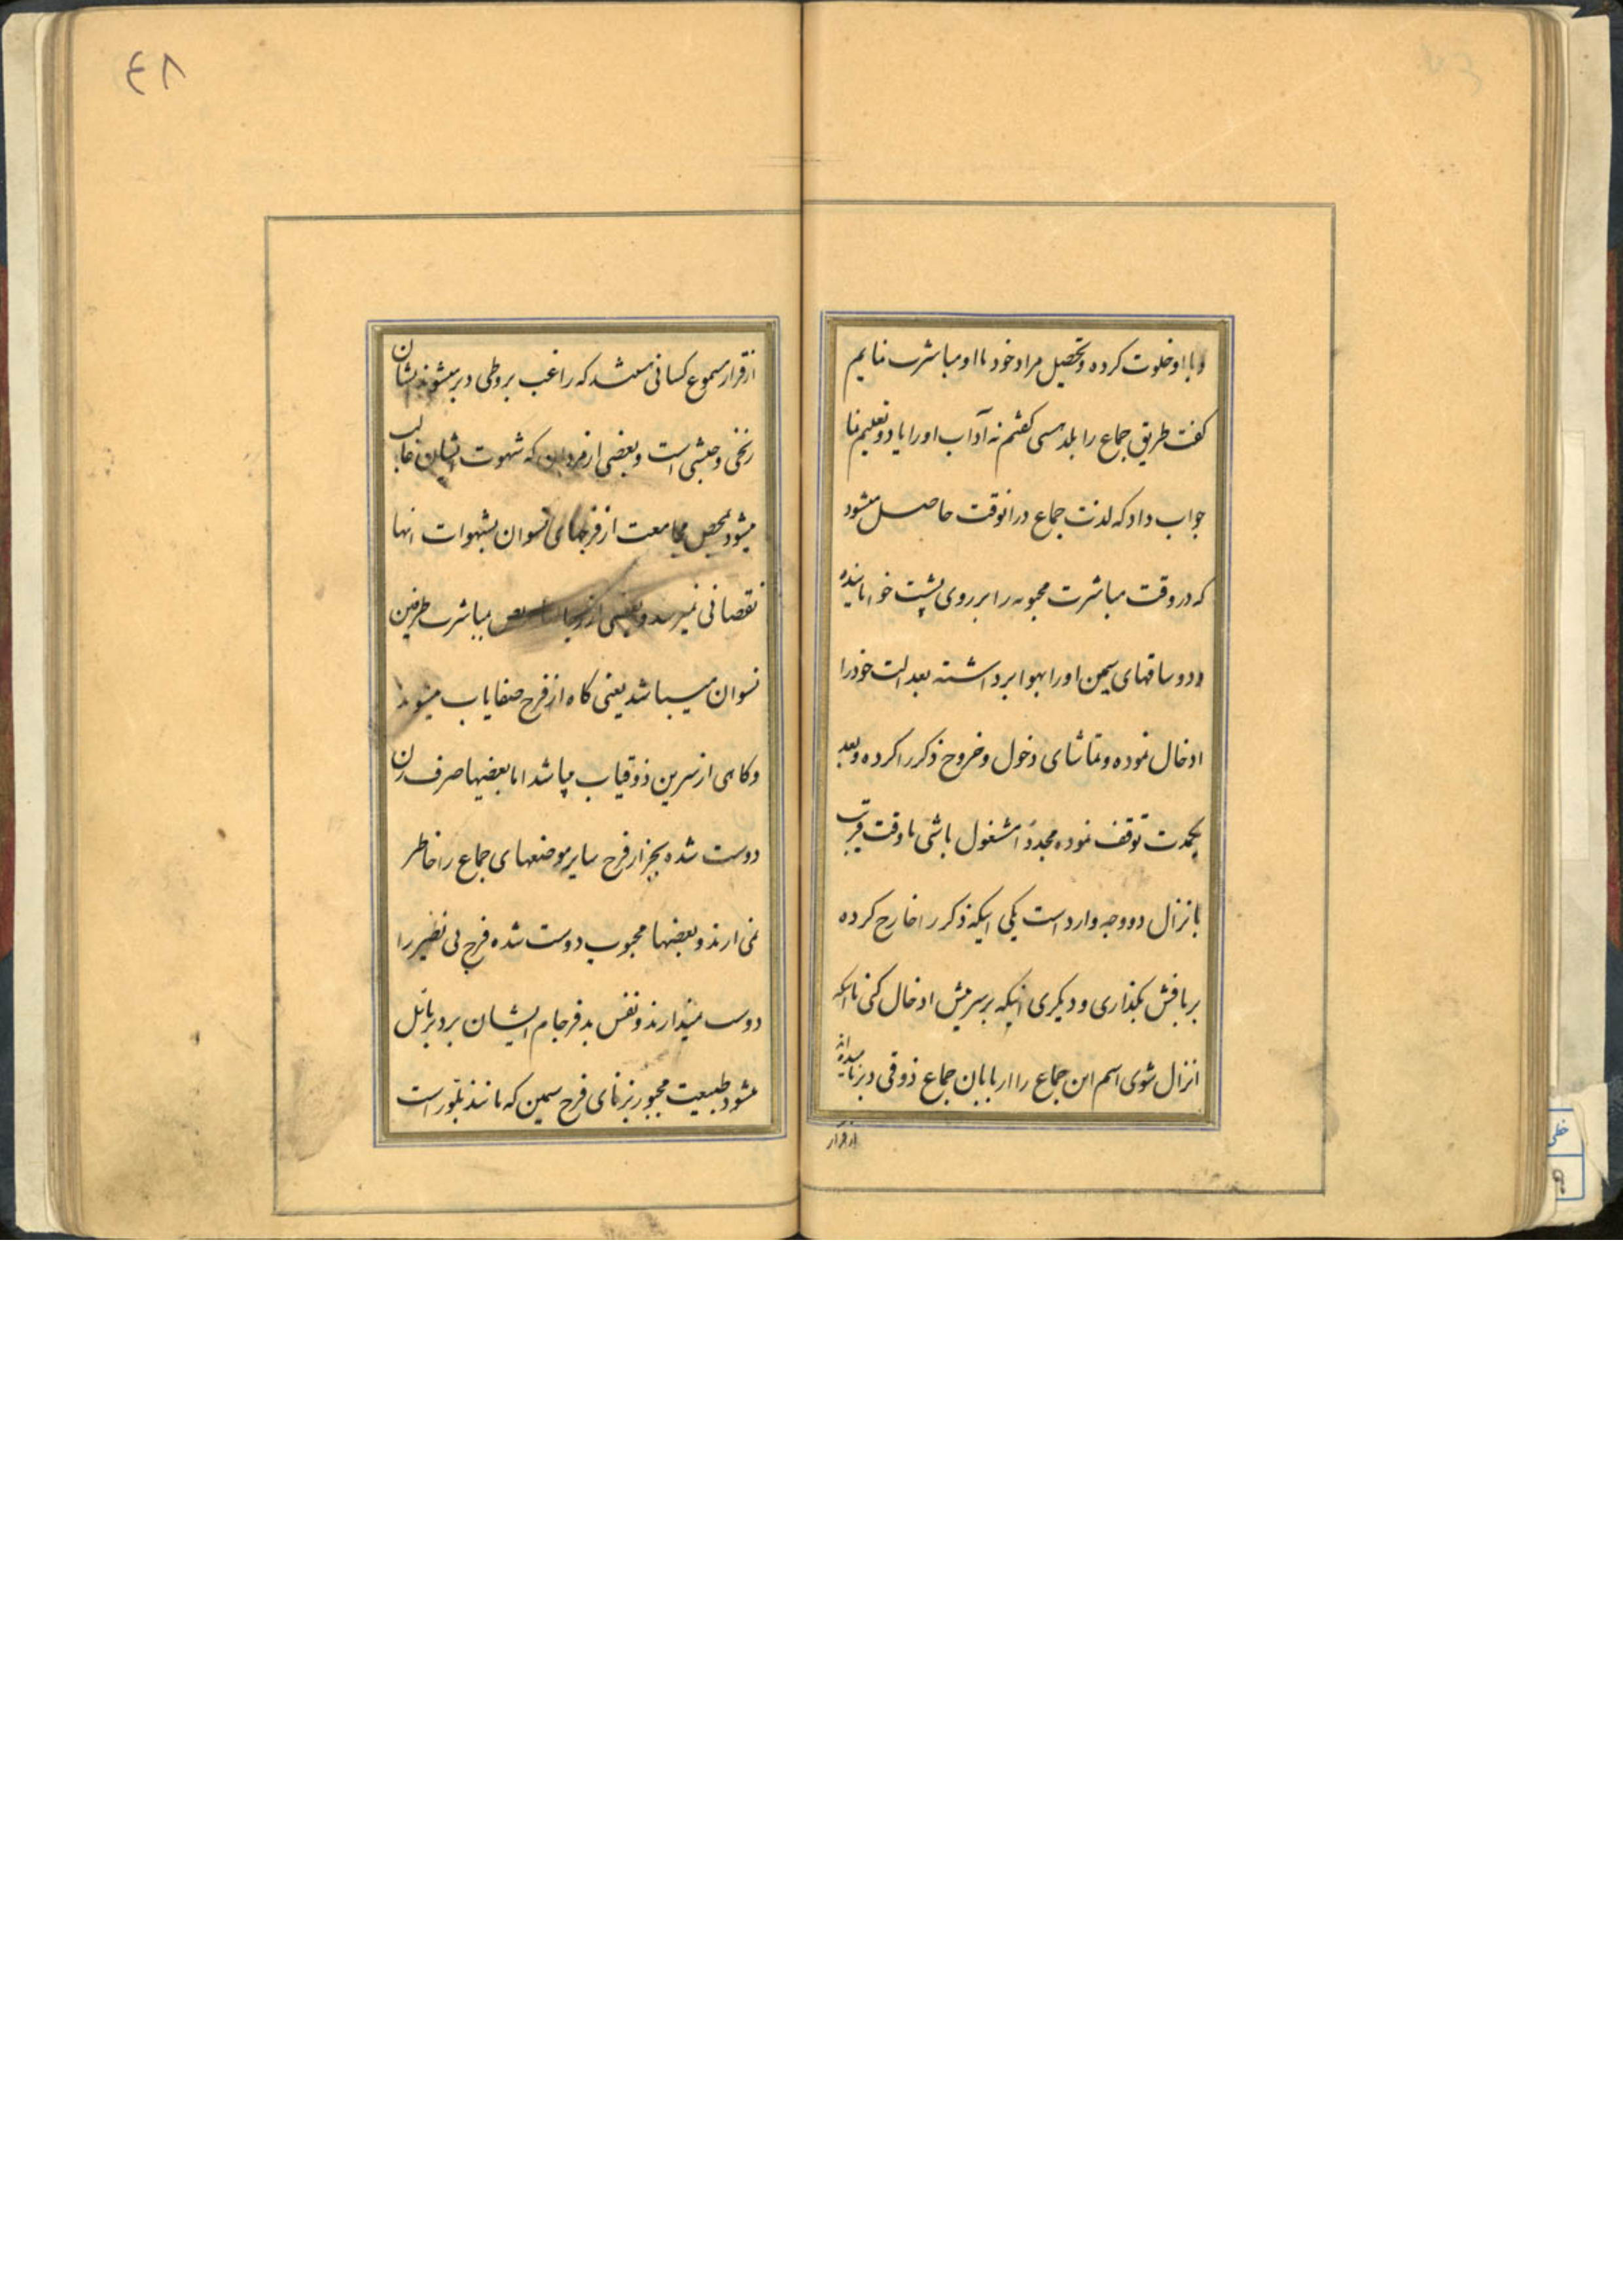 و با او خلوت کرده و تحصیل مراد خود با او مباشرت نمایم
کفت طریق جماع را بلد هستی کفتم نه آداب او را یاد و تعلیم نما
جواب داد که لذت جماع در انوقت حاصل میشود
که در وقت مباشرت محبوبه را بر روی پشت خوابانیده
و دو ساقهای سیمین او را بهوا برداشته بعد الت خود را
ادخال نموده و تماشای دخول و خروج ذکر را کرده و بعد
یکمدت توقف نموده مجدداً مشغول باشی تا وقت قریب
بانزال دو وجه وارد است یکی اینکه ذکر را خارج کرده
بر نافش بگذاری و دیکری اینکه بر سرینش ادخال کنی تا اینکه
انزال شوی اسم این جماع را اربابان جماع ذوقی دبر نامیده‌اند
از قرار
۴۸
از قرار مسموع کسانی هستند که راغب بر وطی دبر میشوند نشان
زنخی و حبشی است و بعضی از مردان که شهوت ایشان غالب
میشود بمحض مجامعت از فرجهای نسوان بشهوات انها
نقصانی نمیرسد و بعضی از مباشرت طرفین
نسوان میباشد یعنی کاه از فرج صفایاب میشوند
و کاهی از سرین ذوقیاب میباشد اما بعضیها صرف زن
دوست شده بجز از فرج سایر موضعهای جماع را خاطر
نمی‌ارند و بعضیها محبوب دوست شده فرج بی نظیر را
دوست نمیدارند و نفس بد فرجام ایشان بر دبر مائل
میشود طبیعت مجبور بزنای فرج سیمین که مانند بلور است
خطی